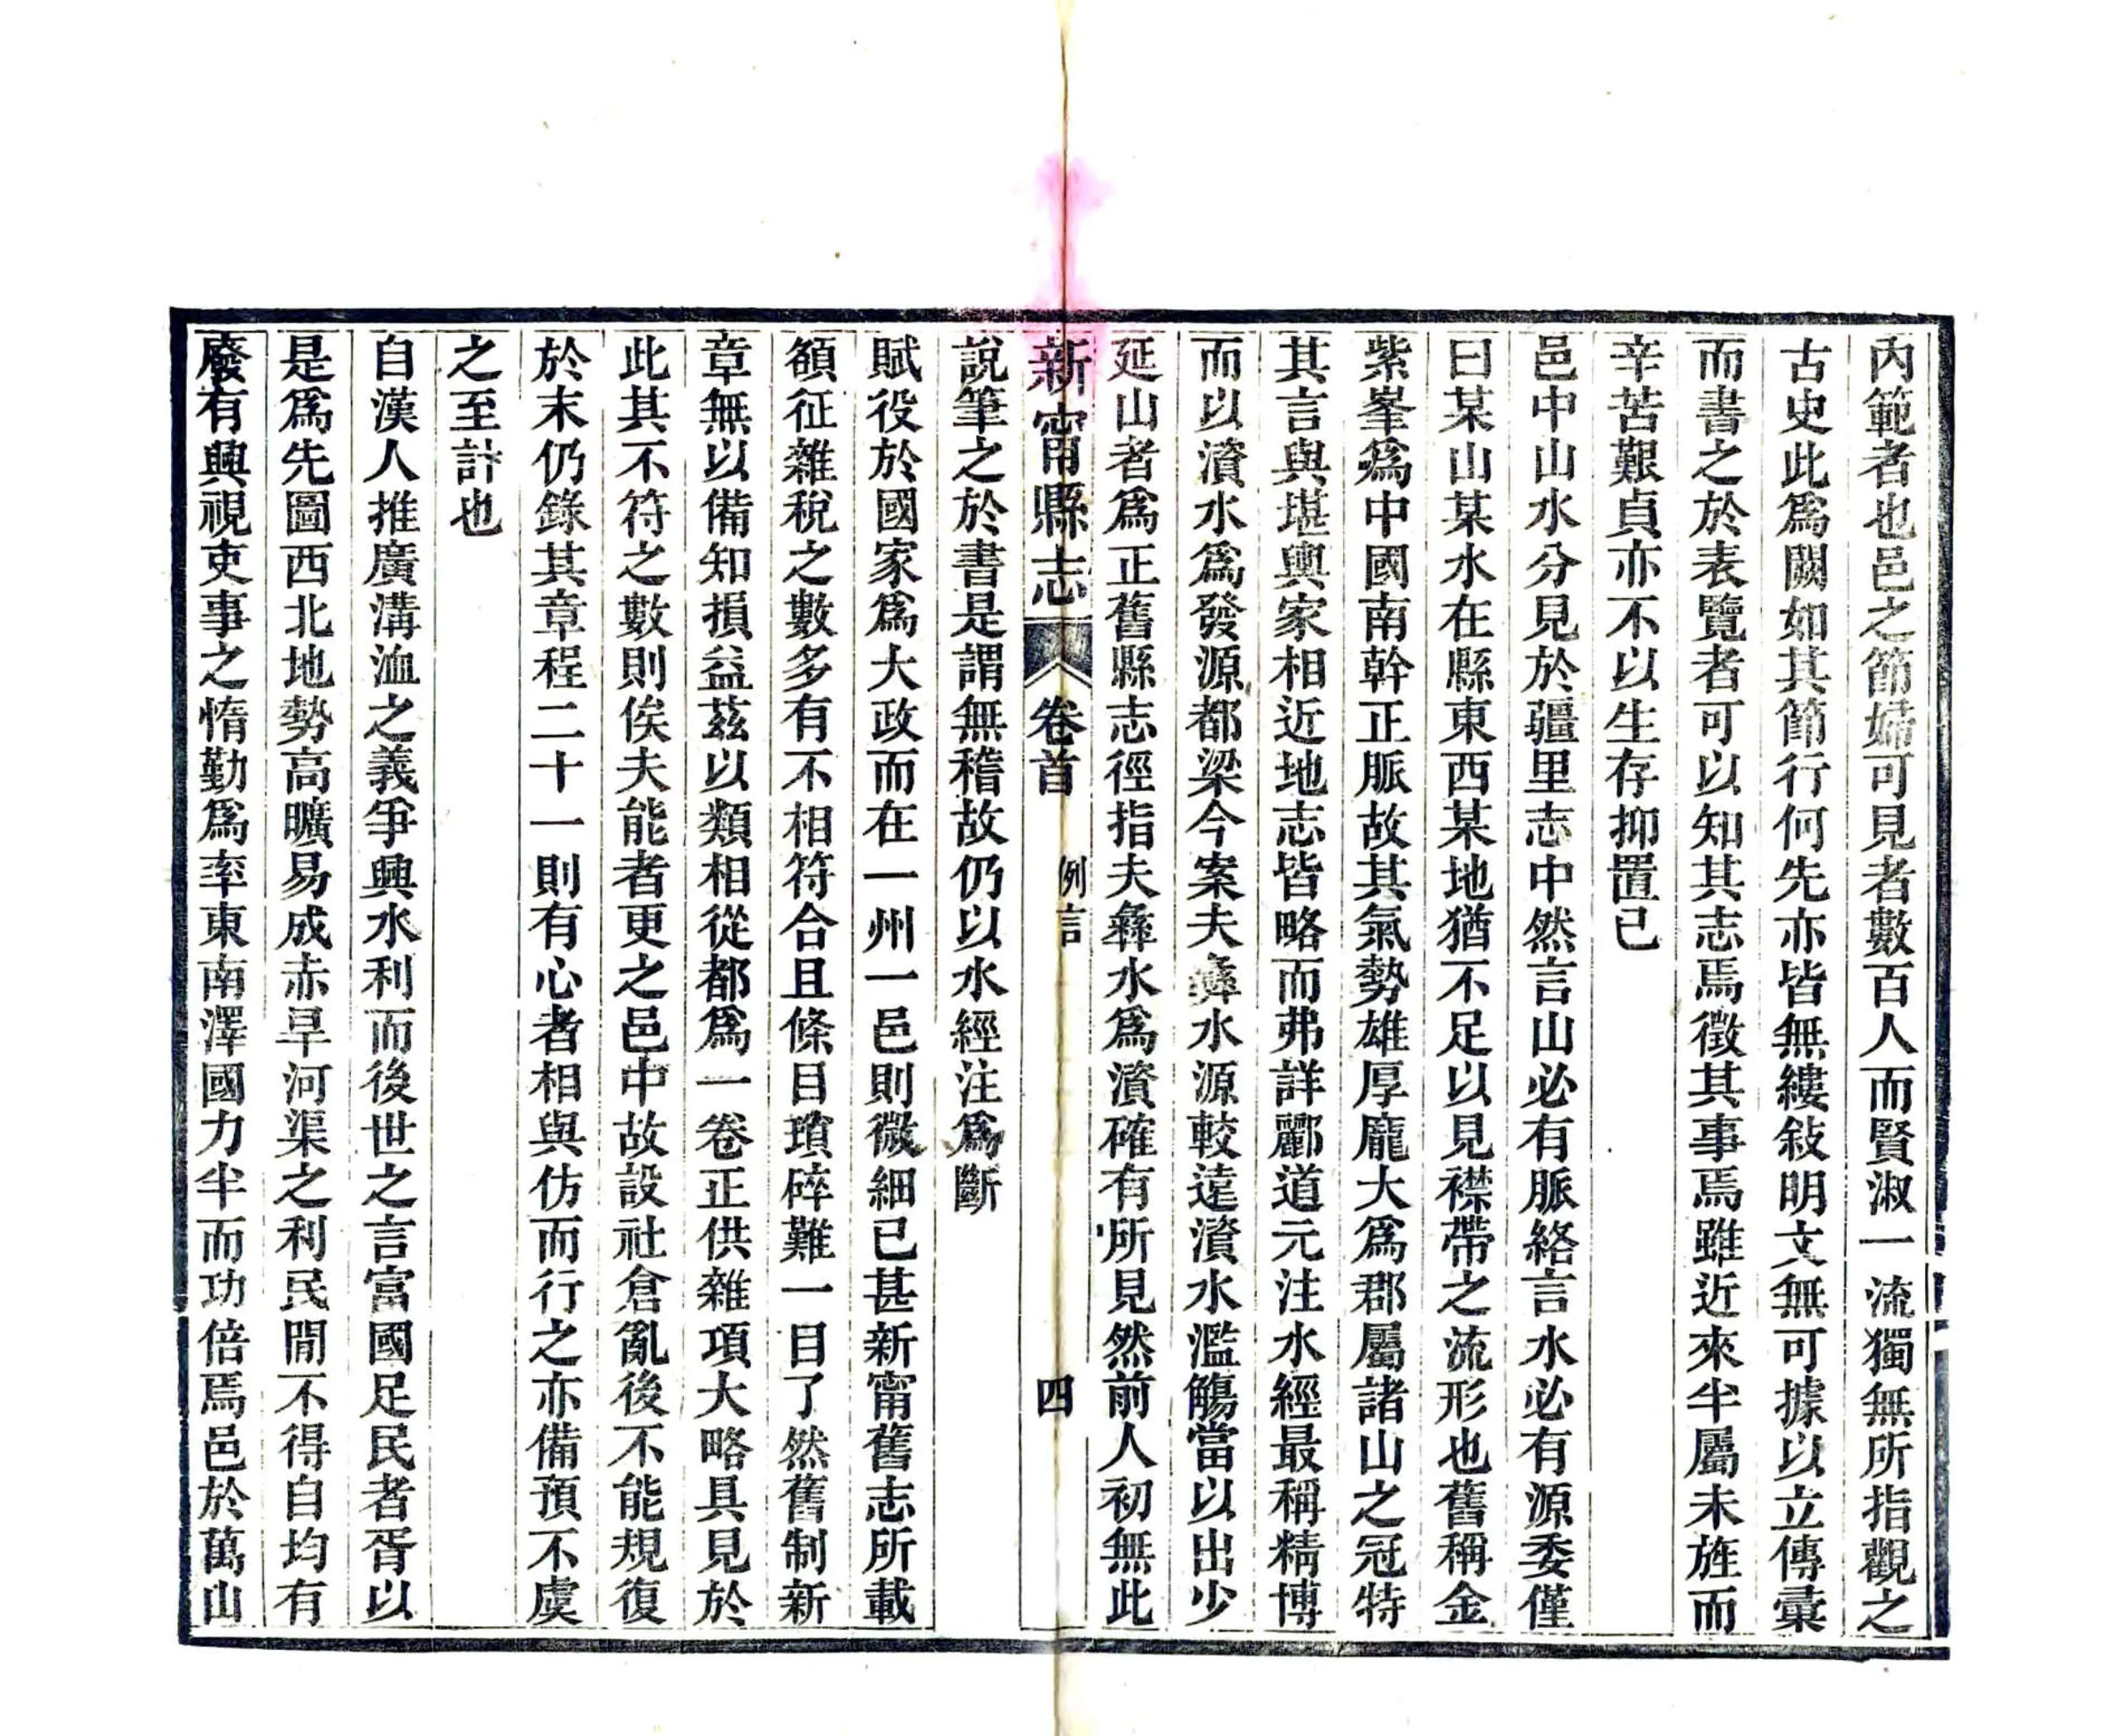 內範者也邑之節婦可見者數百人而賢淑一流獨無所指觀之
古史此爲闕如其節行何先亦皆無縷敍明文無可據以立傳彙
而書之於表覽者可以知其志焉徵其事焉雖近來半屬未旌而
辛苦艱貞亦不以生存抑置已
邑中山水分見於疆里志中然言山必有脈絡言水必有源委僅
曰某山某水在縣東西某地猶不足以見襟帶之流形也舊稱金
紫峯爲中國南幹正脈故其氣勢雄厚龐大爲郡屬諸山之冠特
其言與堪輿家相近地志皆略而弗詳酈道元注水經最稱精博
而以濱水爲發源都梁今案夫彝水源較遠濱水濫觴當以出少
延山者爲正舊縣志徑指夫彝水爲濱確有所見然前人初無此
新甯縣志 卷首 例言 四
說筆之於書是謂無稽故仍以水經注爲斷
賦役於國家爲大政而在一州一邑則微細已甚新甯舊志所載
額征雜稅之數多有不相符合且條目瑣碎難一目了然舊制新
章無以備知損益茲以類相從都爲一卷正供雜項大略具見於
此其不符之數則俟夫能者更之邑中故設社倉亂後不能規復
於末仍錄其章程二十一則有心者相與仿而行之亦備預不虞
之至計也
自漢人推廣溝洫之義爭興水利而後世之言富國足民者胥以
是爲先圖西北地勢高曠易成赤旱河渠之利民間不得自均有
廢有興視吏事之惰勤爲率東南澤國力半而功倍焉邑於萬山